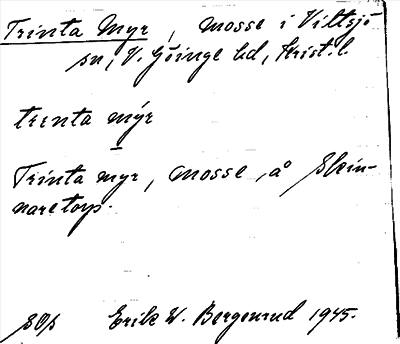 Trinta Myr, mosse i Vittsjö
sn, V. Göinge hd, Krist. l.
trenta mýr
Trinta myr, mosse, å Skin-
naretorp.
Erik W. Bergenrud 1945.